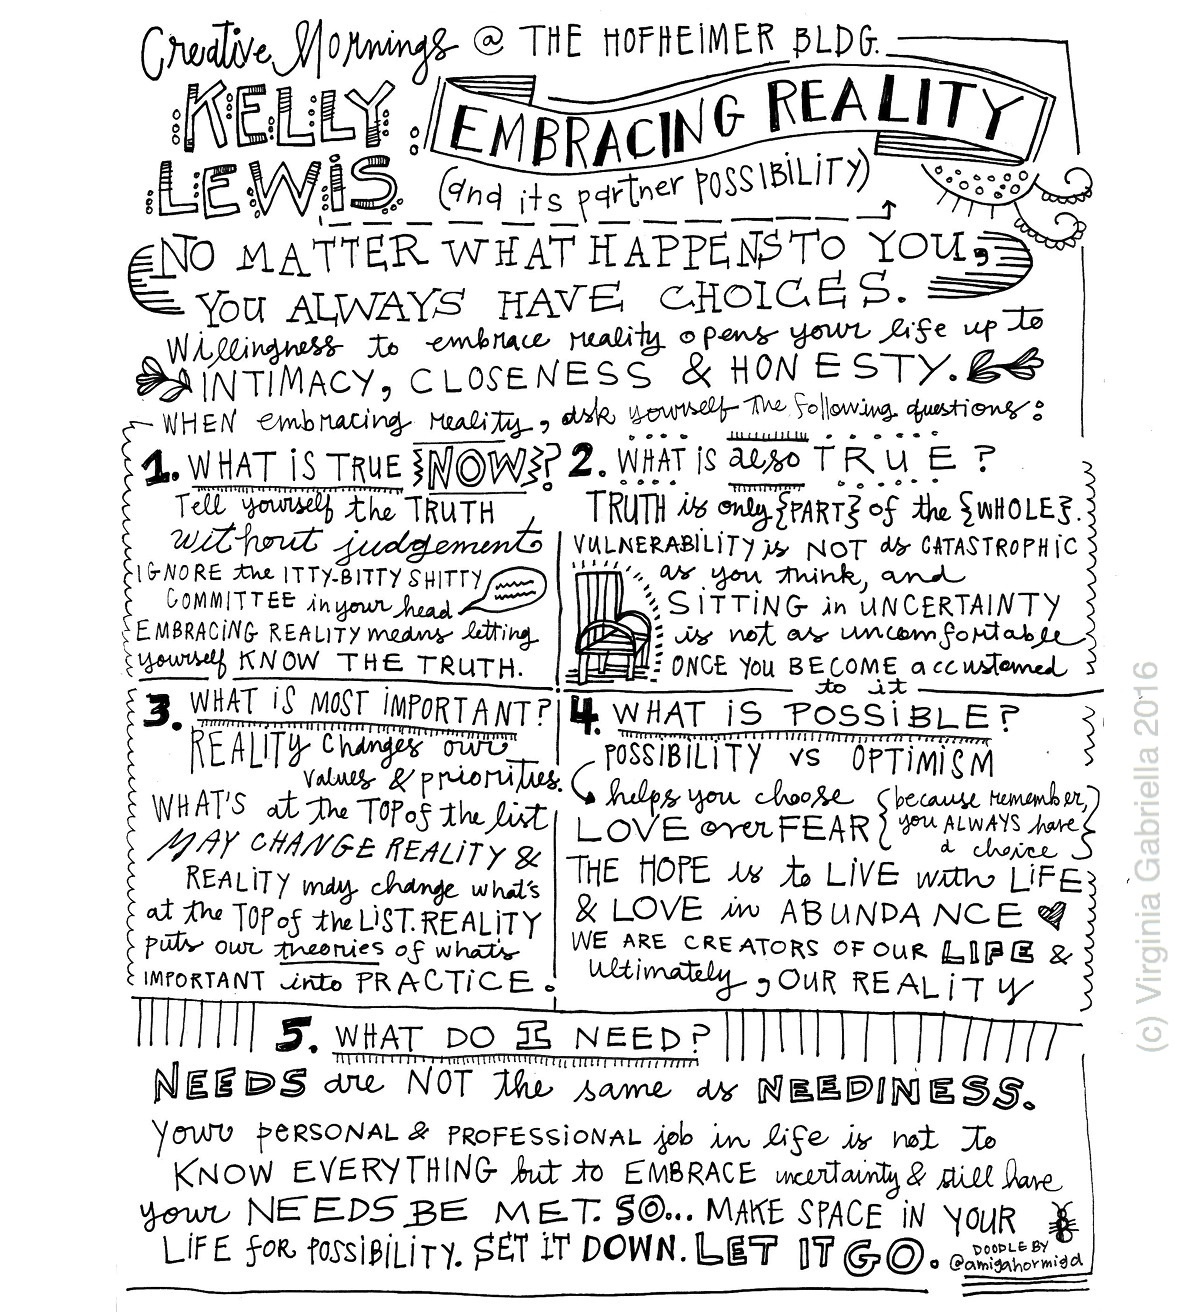 Creative Mornings @ THE HOFHEIMER BLDG.
KELLY LEWIS
EMBRACING REALITY
(and its partner POSSIBILITY)
NO MATTER WHAT HAPPENS TO YOU,
YOU ALWAYS HAVE CHOICES.
Willingness to embrace reality opens your life up to
INTIMACY, CLOSENESS & HONESTY.
WHEN embracing reality, ask yourself the following questions:
1. WHAT iS TRUE {NOW}?
Tell yourself the TRUTH
without judgement
IGNORE the ITTY-BITTY SHITTY
COMMITTEE in your head
EMBRACING REALITY means letting
yourself KNOW THE TRUTH.
2. WHAT iS also TRUE?
TRUTH is only {PART} of the {WHOLE}.
VULNERABILITY is NOT as CATASTROPHIC
as you think, and
SITTING in UNCERTAINTY
is not as uncomfortable
ONCE YOU BECOME accustomed
to it
3. WHAT iS MOST iMPORTANT?
REALITY changes our
values & priorities.
WHAT'S at the TOP of the list
MAY CHANGE REALITY &
REALITY may change what's
at the TOP of the LIST. REALITY
puts our theories of what's
IMPORTANT into PRACTICE.
4. WHAT iS POSSiBLE?
POSSIBILITY vs OPTiMiSM
helps you choose
LOVE over FEAR
{because remember,
you ALWAYS have
a choice}
THE HOPE is to LIVE with LIFE
& LOVE in ABUNDANCE
WE ARE CREATORS OF OUR LIFE &
ultimately, OUR REALITY
5. WHAT DO I NEED?
NEEDS are NOT the same as NEEDINESS.
Your PERSONAL & PROFESSIONAL job in life is not to
KNOW EVERYTHING but to EMBRACE uncertainty & still have
your NEEDS BE MET. SO... MAKE SPACE iN YOUR
LiFE foR POSSiBiLiTY. SET iT DOWN. LET IT GO.
DOODLE BY
@amigahormiga
(c) Virginia Gabriella 2016